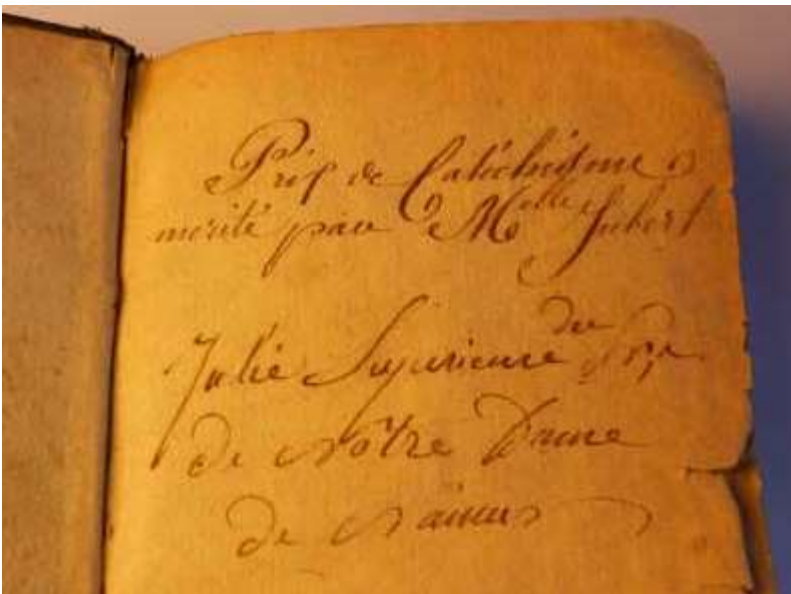 Prix de Catéchisme
merité par Melle Jubert
Julie Superieure des
de Notre Dame
de Namur